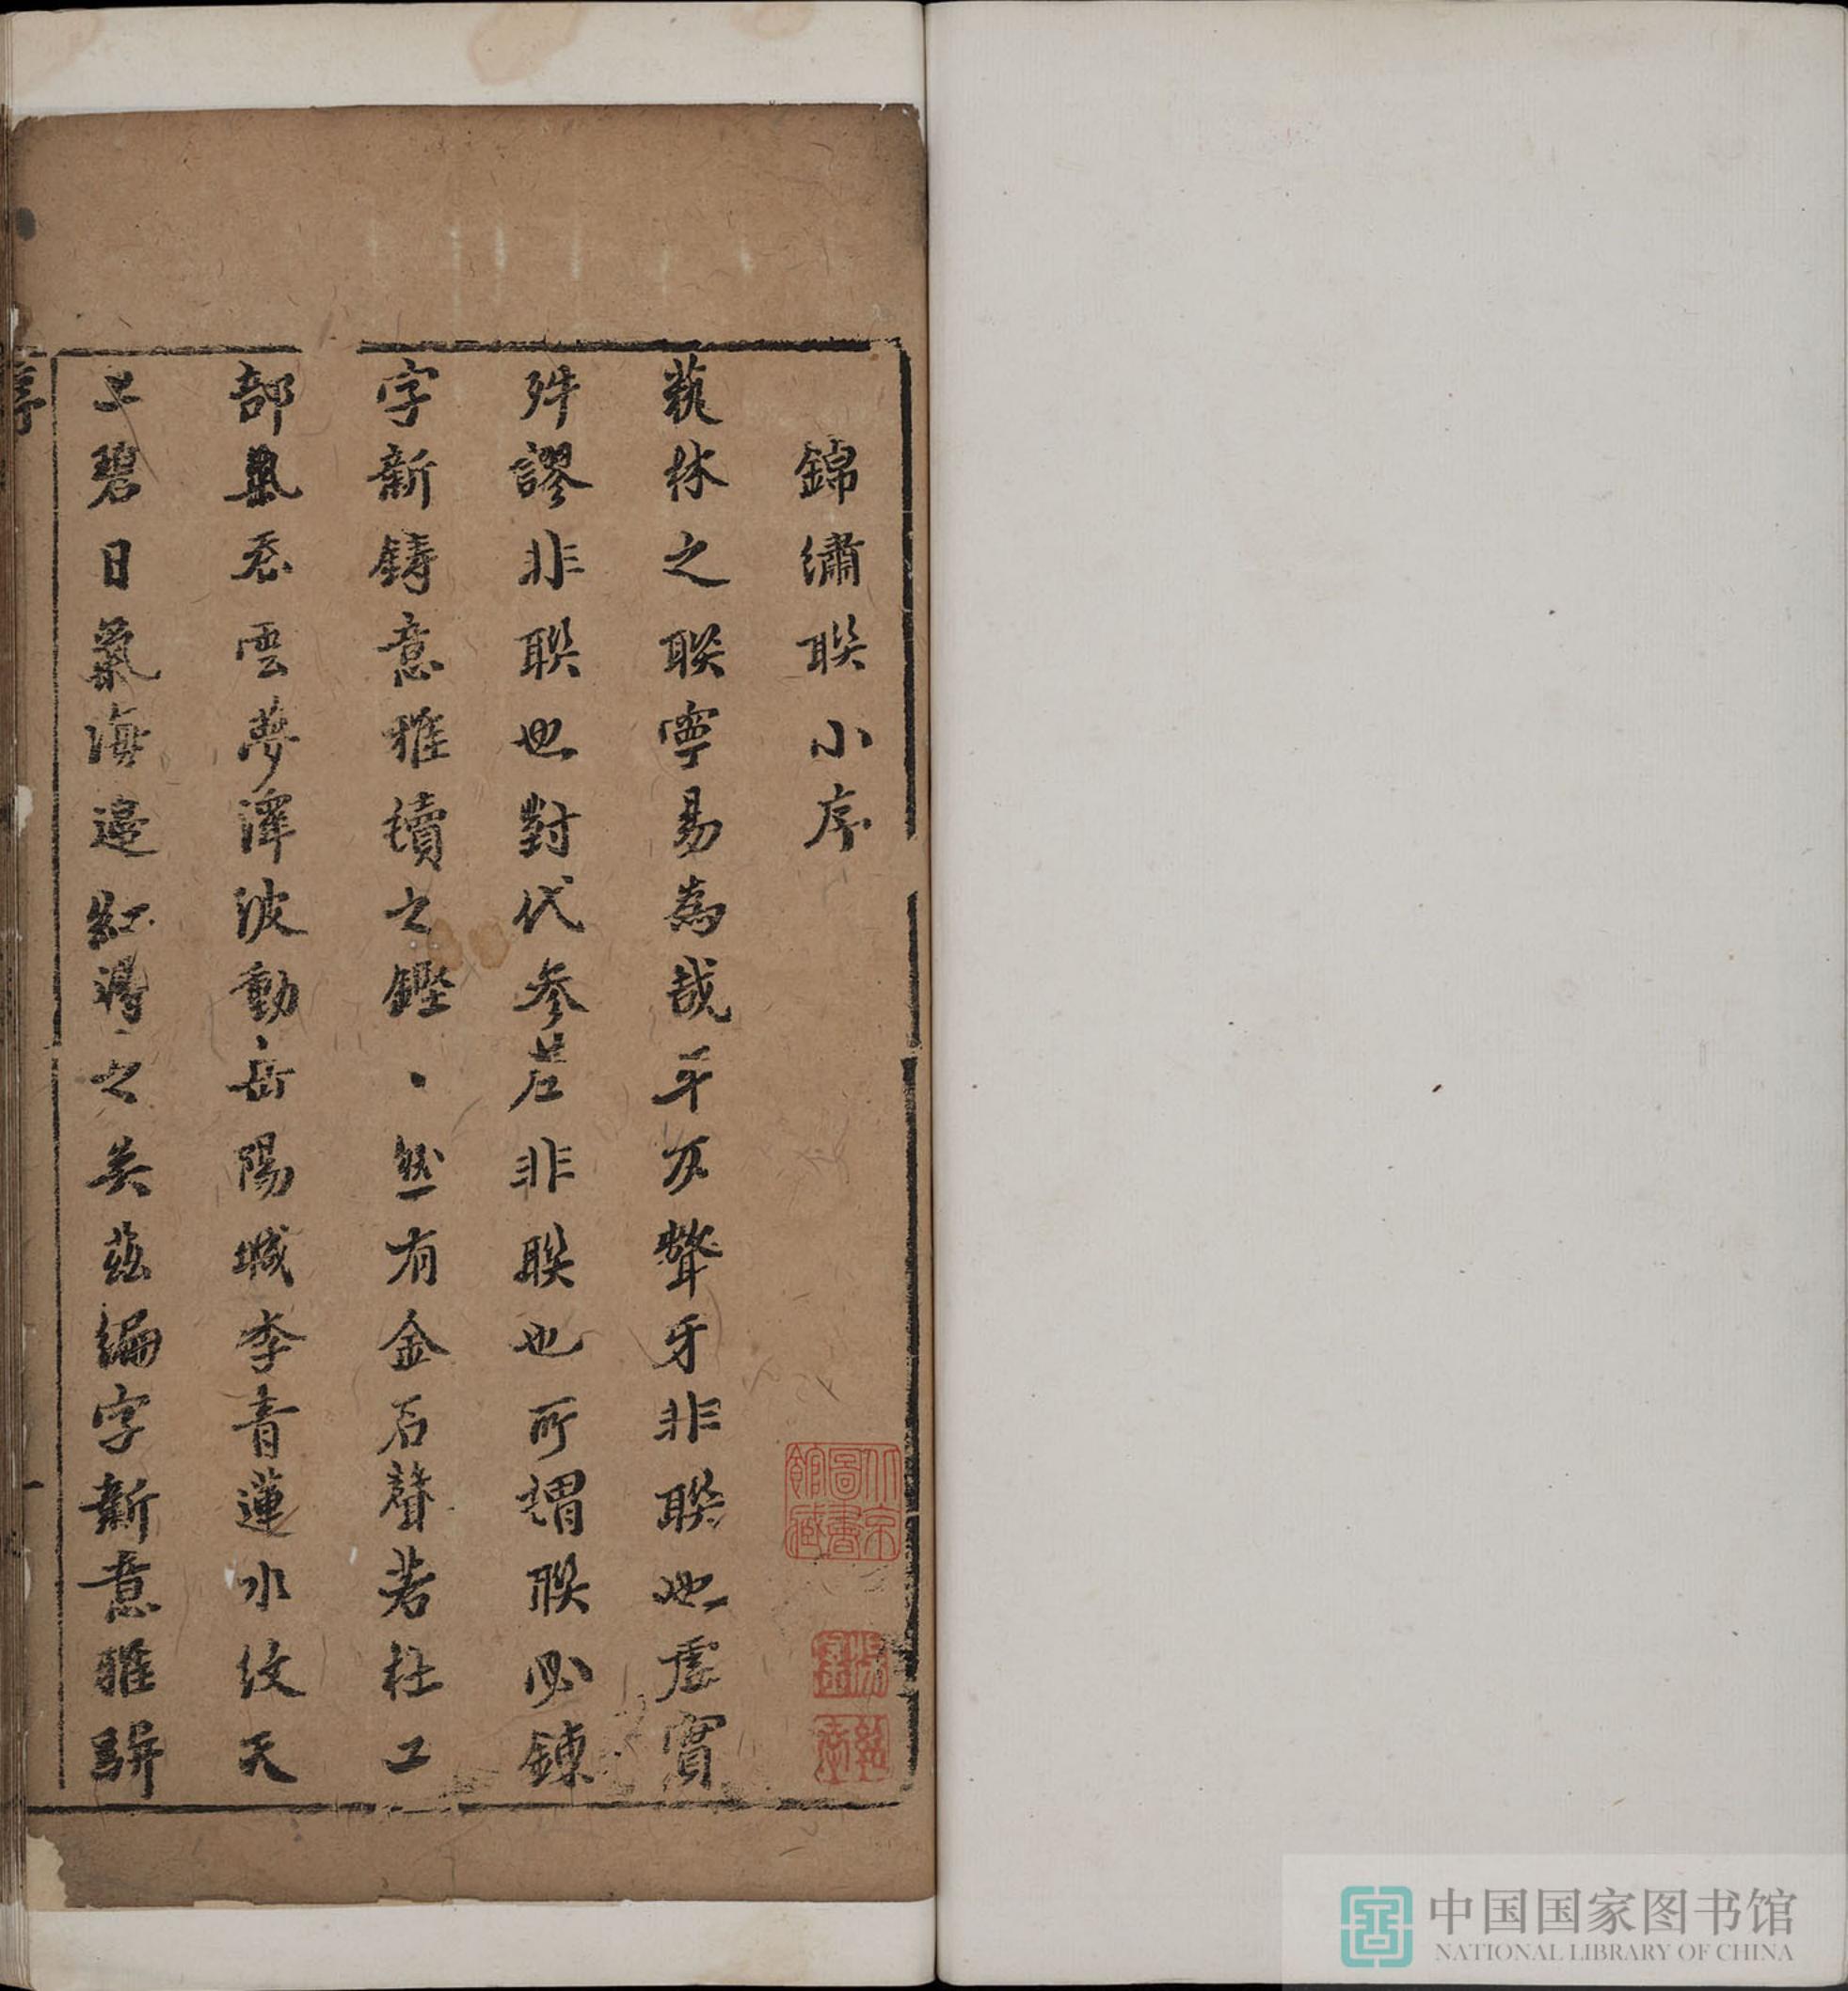 錦繡聯小序
蓺林之聯寧易為哉平仄聱牙非聯也虛實
舛謬非聯也對代參差非聯也所謂聯必鍊
字新鑄意雅讀之鏗、然有金石聲若杜工
部氣吞雲夢澤波動岳陽城李青蓮水紋天
上碧日氣海邊紅得之矣茲編字新意雅駢
序
一
北京圖書館藏
中国国家图书馆
NATIONAL LIBRARY OF CHINA